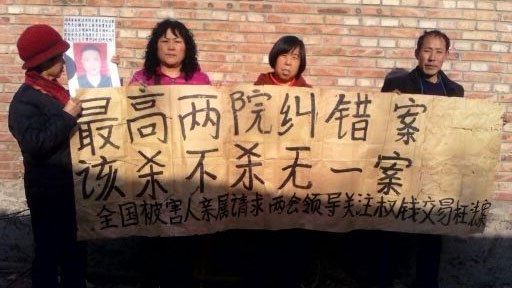 最高两院纠错案
该杀不杀无一案
全国被害人亲属请求两会领导关注权钱交易枉法